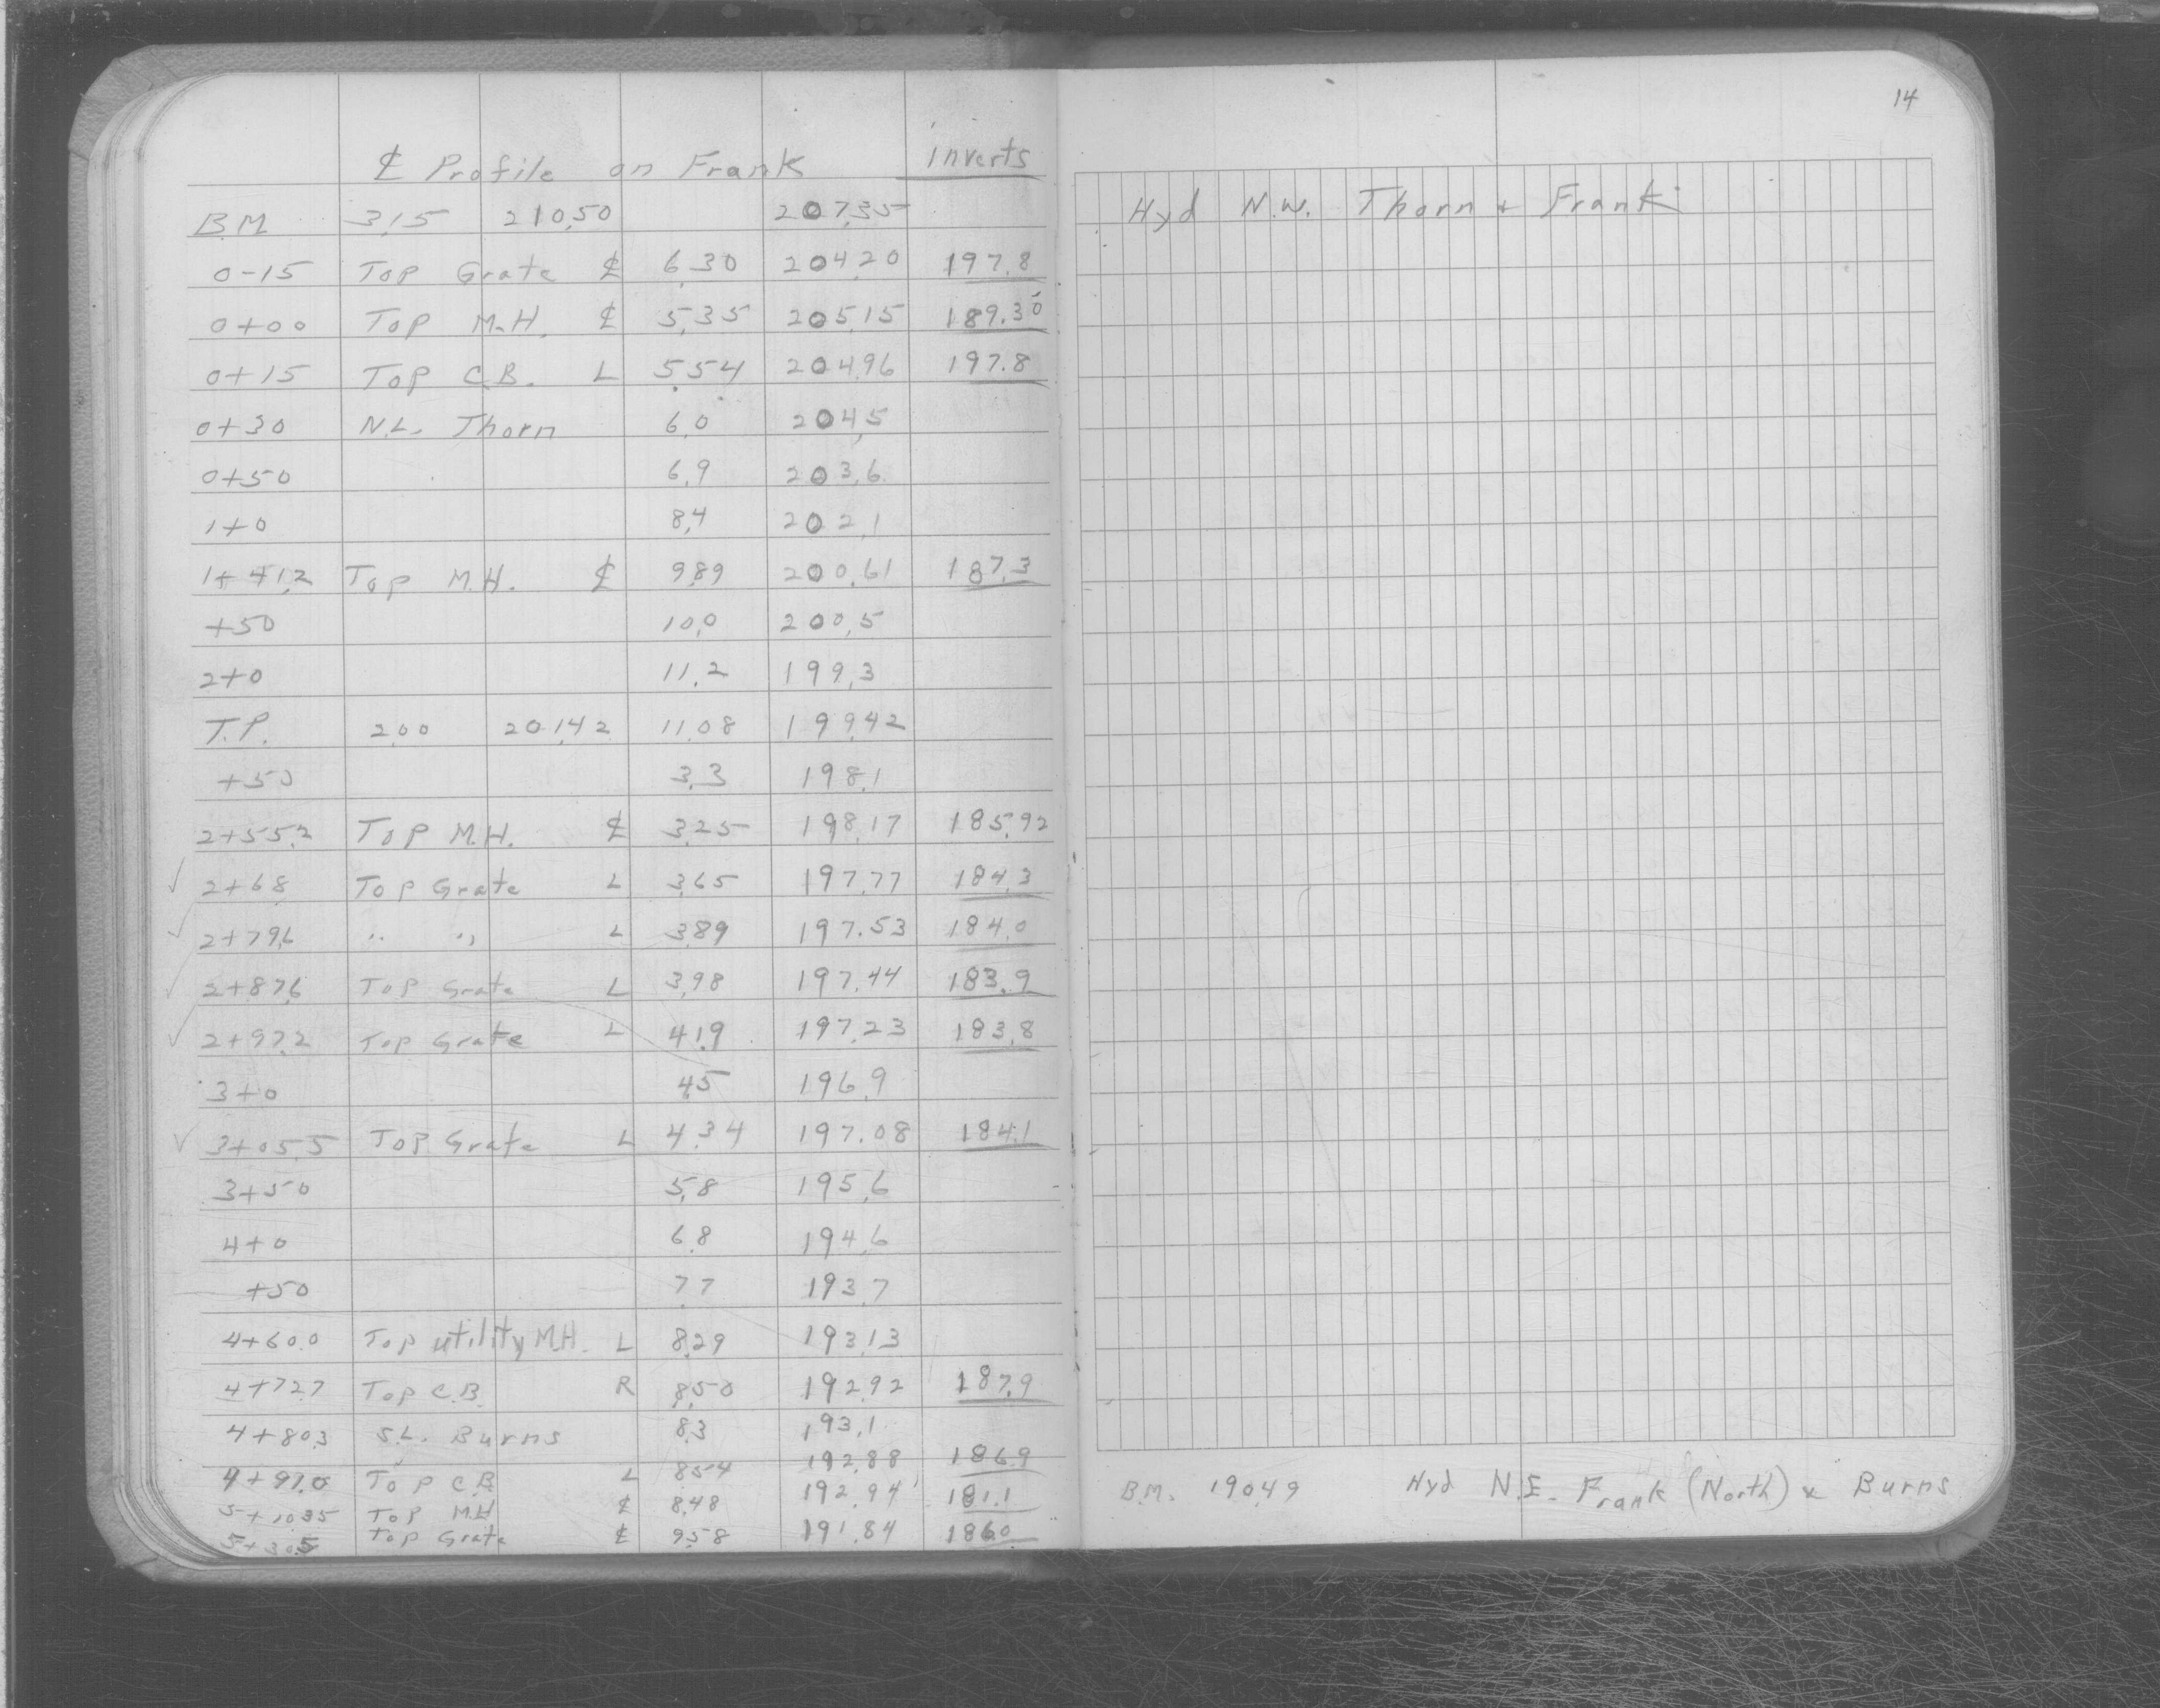 ₵ Profile on Frank inverts
B.M 3.15 210.50 207.35
0-15 Top Grate ₵ 6.30 204.20 197.8
0+00 Top M.H. ₵ 5.35 205.15 189.30
0+15 Top C.B. L 5.54 204.96 197.8
0+30 N.L. Thorn 6.0 204.5
0+50 6.9 203.6
1+0 8.4 202.1
1+41.2 Top M.H. ₵ 9.89 200.61 187.3
+50 10.0 200.5
2+0 11.2 199.3
T.P. 2.00 201.42 11.08 199.42
+50 3.3 198.1
2+55.2 Top M.H. ₵ 3.25 198.17 185.92
✓ 2+68 Top Grate L 3.65 197.77 184.3
✓ 2+79.6 " " L 3.89 197.53 184.0
✓ 2+87.6 Top Grate L 3.98 197.44 183.9
✓ 2+97.2 Top Grate L 4.19 197.23 183.8
3+0 4.5 196.9
✓ 3+05.5 Top Grate L 4.34 197.08 184.1
3+50 5.8 195.6
4+0 6.8 194.6
+50 7.7 193.7
4+60.0 Top utility M.H. L 8.29 193.13
4+72.7 Top C.B. R 8.50 192.92 187.9
4+80.3 S.L. Burns 8.3 193.1
4+97.0 Top C.B L 8.54 192.88 186.9
5+10.35 Top M.H ₵ 8.48 192.94 181.1
5+30.5 Top Grate ₵ 9.58 191.84 186.0
14
Hyd N.W. Thorn + Frank
B.M. 190.49 Hyd N.E. Frank (North) & Burns